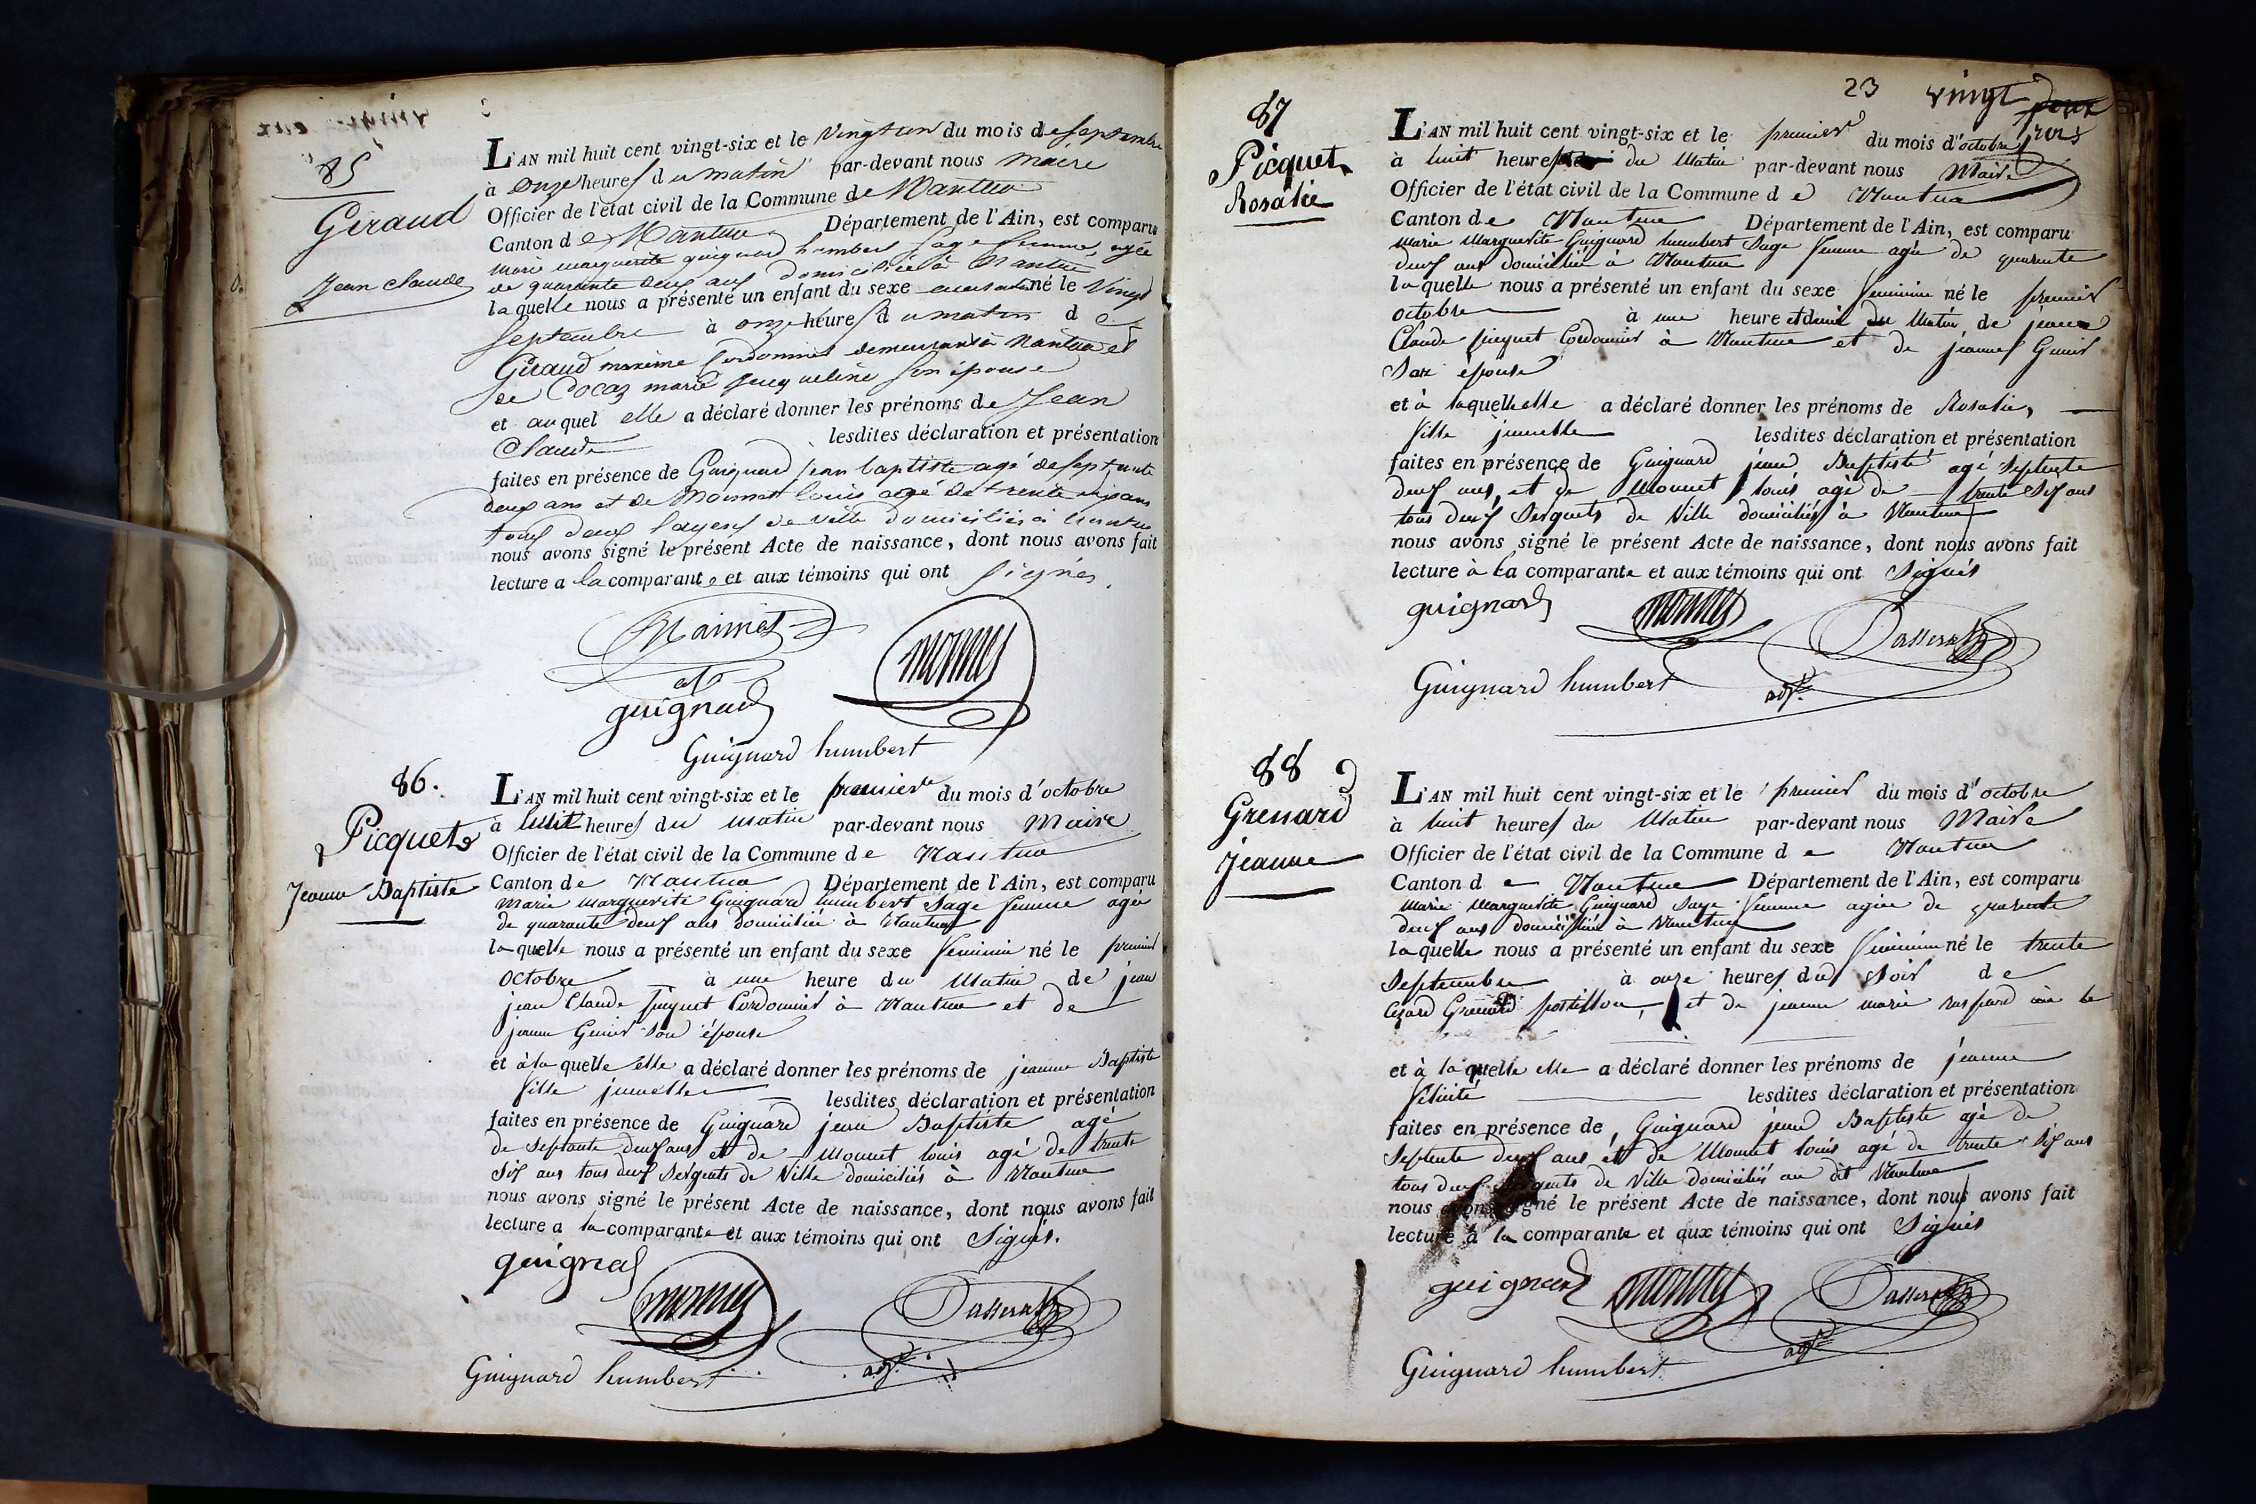 85
Giraud
Jean Claude
L'AN mil huit cent vingt-six et le vingt un du mois de septembre
à onze heures du matin par-devant nous maire
Officier de l'état civil de la Commune de Nantua
Canton de Nantua Département de l'Ain, est comparu
marie marguerite guignard humbert sage femme, agée
de quarante deux ans domiciliée à Nantua
laquelle nous a présenté un enfant du sexe masculin né le vingt
septembre à onze heures du matin de
Giraud maxime cordonnier demeurant à Nantua et
de Cocaz marie jacqueline son épouse
et auquel elle a déclaré donner les prénoms de Jean
Claude lesdites déclaration et présentation
faites en présence de Guignard jean baptiste agé de septante
deux ans et de Monnet louis agé de trente six ans
tous deux de ville domiciliés à Nantua
nous avons signé le présent Acte de naissance, dont nous avons fait
lecture a la comparante et aux témoins qui ont signés.
monnet
guignard
Guignard humbert
86.
Picquet
Jeanne Baptiste
L'AN mil huit cent vingt-six et le premier du mois d'octobre
à huit heures du matin par-devant nous Maire
Officier de l'état civil de la Commune de Nantua
Canton de Nantua Département de l'Ain, est comparu
Marie Marguerite Guignard humbert Sage femme agée
de quarante deux ans domiciliée à Nantua
laquelle nous a présenté un enfant du sexe feminin né le premier
octobre à une heure du Matin de jean
jean Claude picquet Cordonnier à Nantua et de
jeanne Genier son épouse
et à laquelle elle a déclaré donner les prénoms de jeanne Baptiste
fille jumelle lesdites déclaration et présentation
faites en présence de Guignard jean Baptiste agé
de Septante deux ans et de Monnet louis agé de trente
Six ans tous deux Sergents de Ville domiciliés à Nantua
nous avons signé le présent Acte de naissance, dont nous avons fait
lecture a la comparante et aux témoins qui ont Signés.
guignard
monnet
Passerat
adj.
Guignard humbert
23 vingt deux
trois
87
Picquet
Rosalie
L'AN mil huit cent vingt-six et le premier du mois d'octobre
à huit heures du Matin par-devant nous Maire
Officier de l'état civil de la Commune de Nantua
Canton de Nantua Département de l'Ain, est comparu
Marie Marguerite Guignard humbert Sage femme agée de quarente
deux ans domiciliée à Nantua
laquelle nous a présenté un enfant du sexe feminin né le premier
octobre à une heure et demi du Matin, de jeanne
Claude picquet Cordonnier à Nantua et de jeanne Genier
Son épouse
et à laquelle elle a déclaré donner les prénoms de Rosalie,
fille jumelle lesdites déclaration et présentation
faites en présence de Guignard jean Baptiste agé Septente
deux ans, et de Monnet louis agé de trente Six ans
tous deux Sergents de Ville domiciliés à Nantua
nous avons signé le présent Acte de naissance, dont nous avons fait
lecture à la comparante et aux témoins qui ont Signés
guignard
monnet
Passerat
Guignard humbert adj.
88
Grenard
Jeanne
L'AN mil huit cent vingt-six et le premier du mois d'octobre
à huit heures du Matin par-devant nous Maire
Officier de l'état civil de la Commune de Nantua
Canton de Nantua Département de l'Ain, est comparu
Marie Marguerite Guignard Sage femme agée de quarente
deux ans domiciliée à Nantua
laquelle nous a présenté un enfant du sexe feminin né le trente
Septembre à onze heures du Soir de
Cézard Grenard postillon, et de jeanne marie
et à laquelle elle a déclaré donner les prénoms de jeanne
félicité lesdites déclaration et présentation
faites en présence de Guignard jean Baptiste agé de
Septente deux ans et de Monnet louis agé de trente Six ans
tous deux Sergents de Ville domiciliés au dit Nantua
nous avons signé le présent Acte de naissance, dont nous avons fait
lecture à la comparante et aux témoins qui ont Signés
guignard
monnet
Passerat
adj.
Guignard humbert